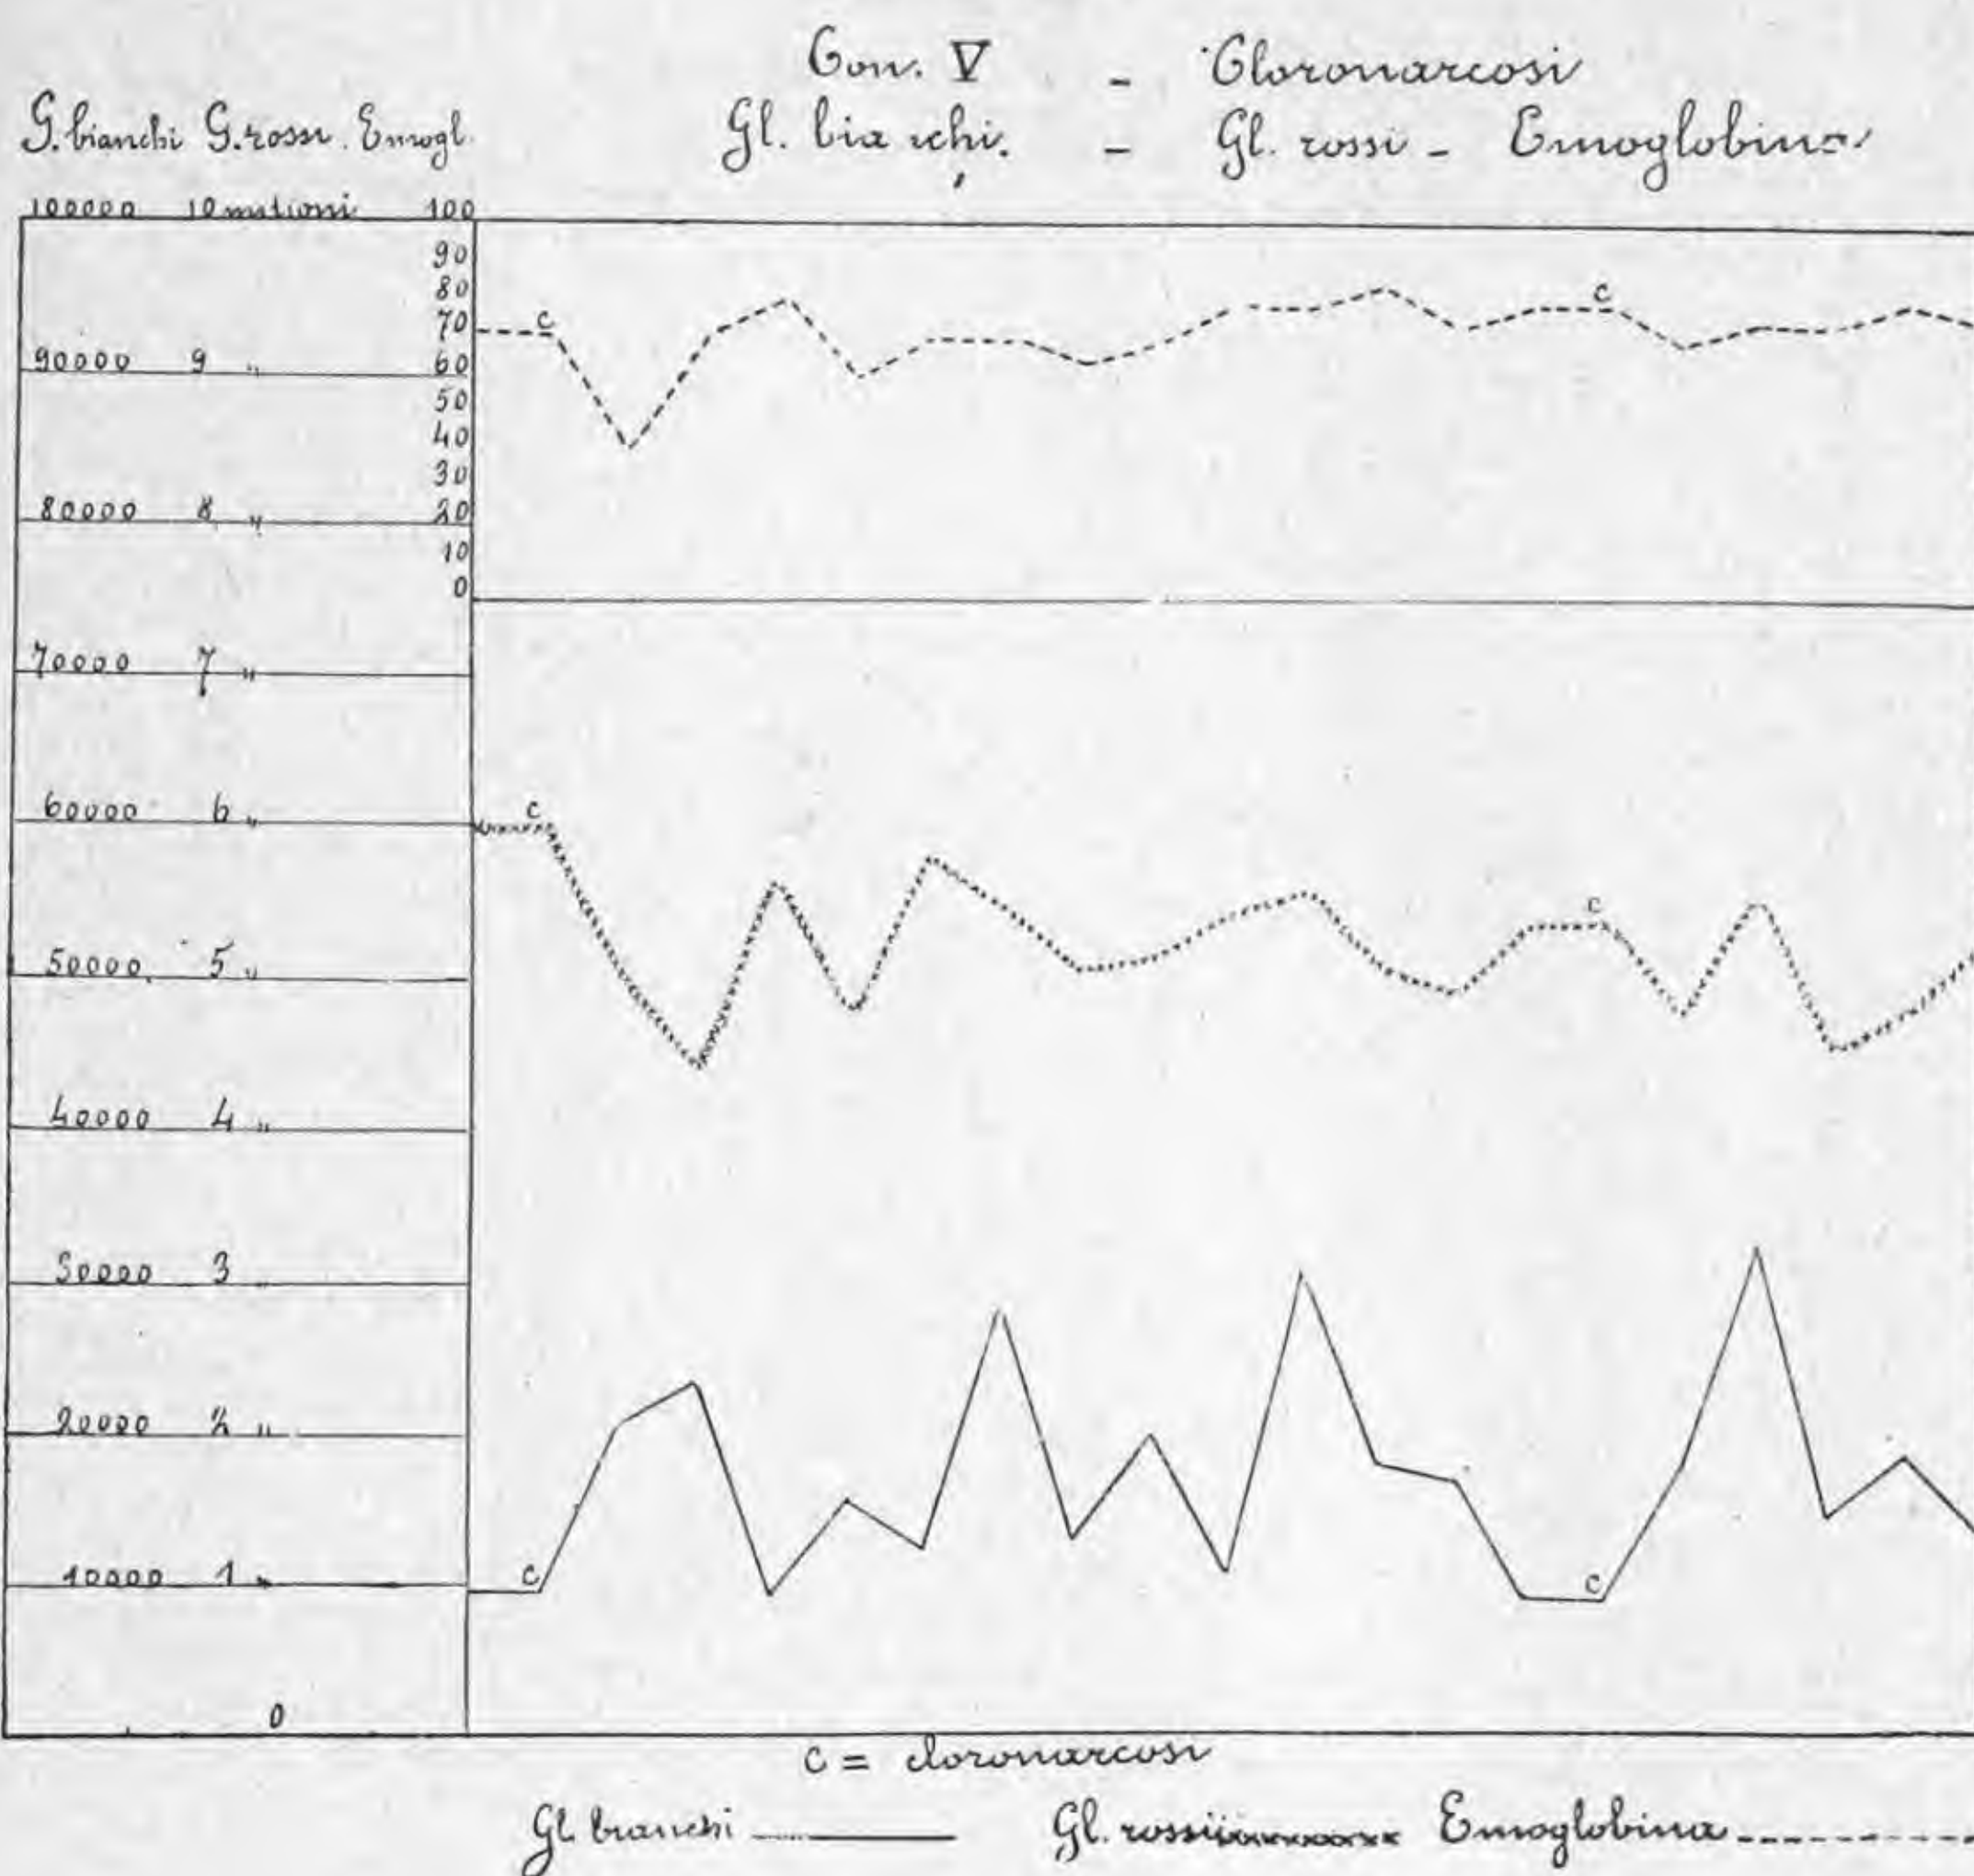 Con. V - Cloronarcosi
Gl. bianchi. - Gl. rossi - Emoglobina
G. bianchi G. rossi. Emogl.
100000 10 milioni 100
90
80
70
90000 9 " 60
50
40
30
80000 8 " 20
10
0
70000 7 "
60000 6 "
50000 5 "
40000 4 "
30000 3 "
20000 2 "
10000 1 "
0
c c
c c
c c
c = cloronarcosi
Gl. bianchi Gl. rossi Emoglobina